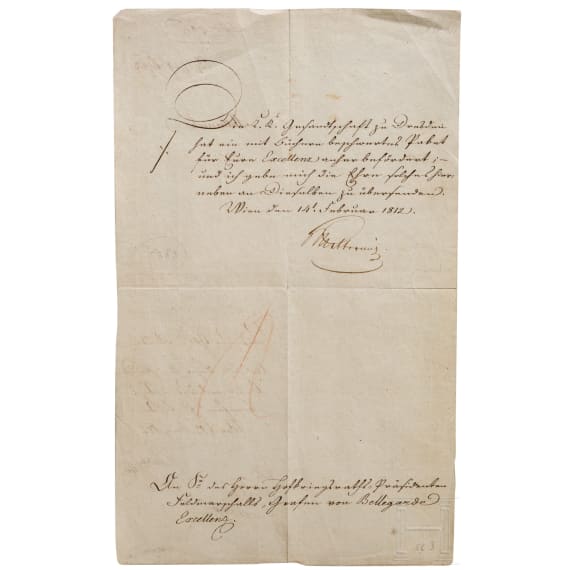 Die k. k. Gesandtschaft zu Dresden
hat ein mit Büchern beschwertes Paket
für Eure Excellenz anher befördert;-
und ich gebe mir die Ehre solches hier-
neben an Dieselben zu übersenden.
Wien den 14t Februar 1812.
Metternich
An Sr des Herrn Hofkriegsraths-Präsidenten
Feldmarschalls, Grafen von Bellegarde
Excellenz.